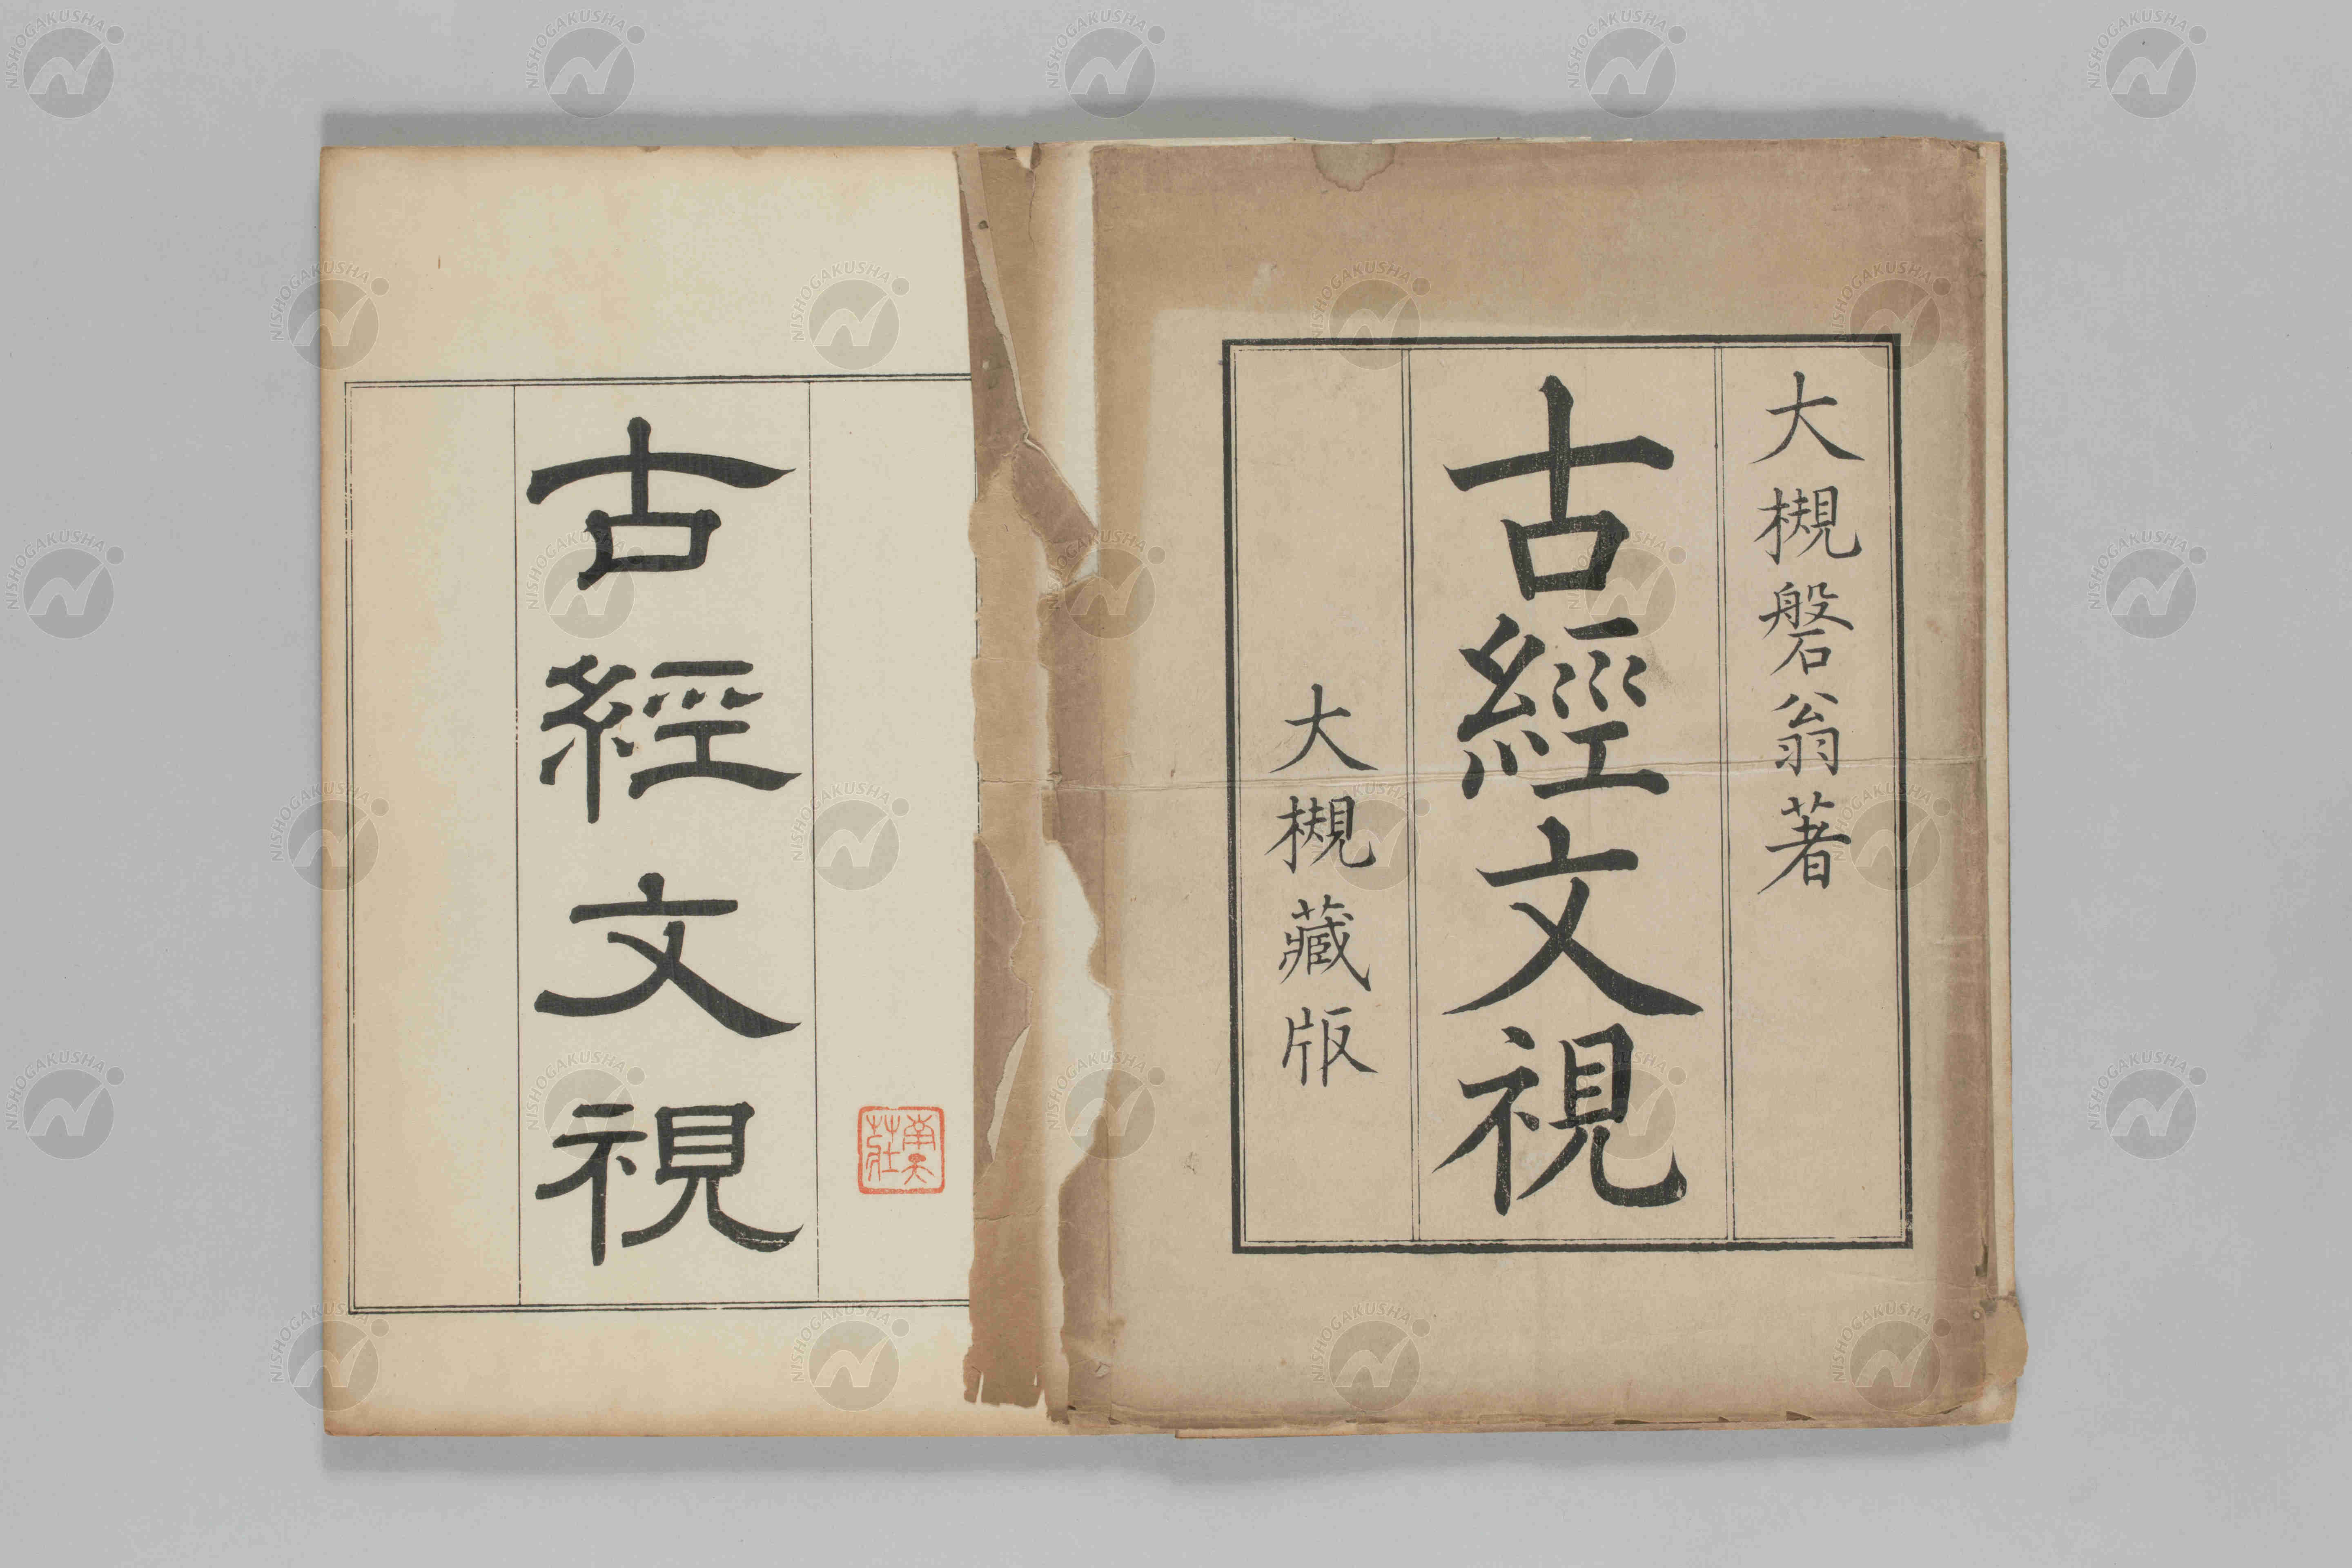 大槻磐翁著
古經文視
大槻藏版
古經文視
NISHOGAKUSHA